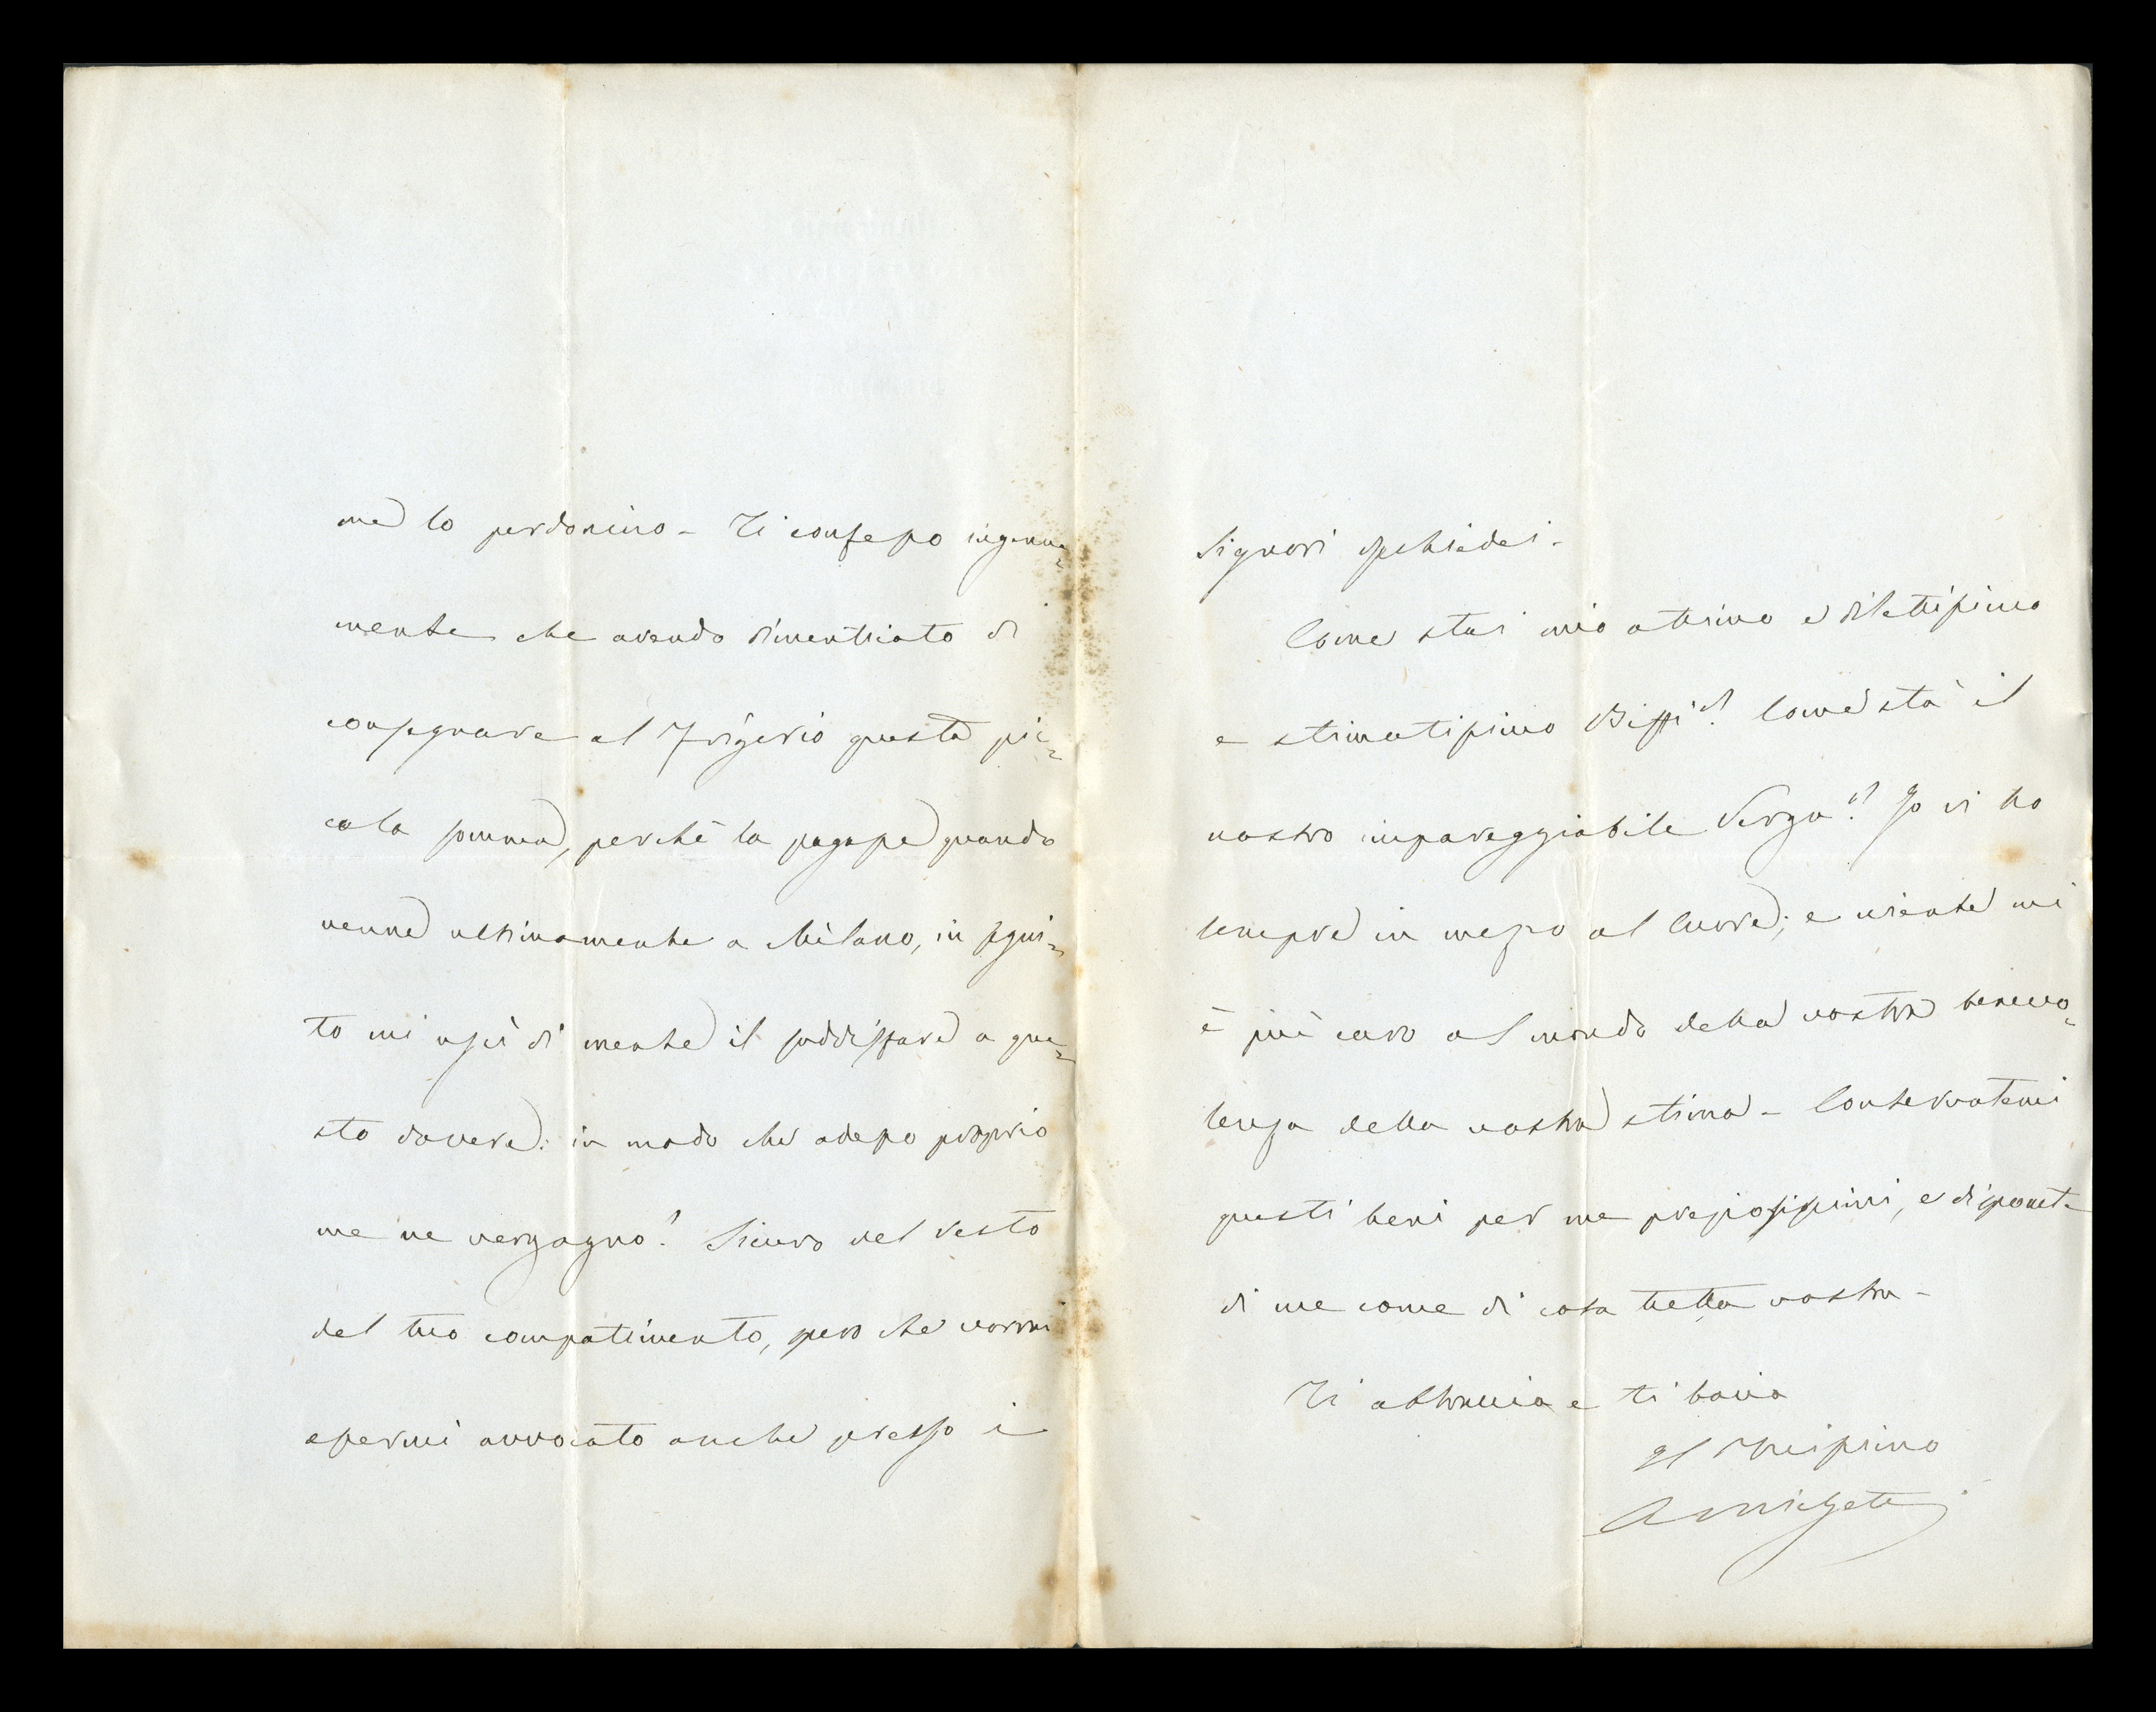 me lo perdonino - Ti confesso ingenua=
mente che avendo dimenticato di
consegnare al Frigerio questa pic=
cola somma, perchè la pagasse quando
venne ultimamente a Milano, in segui=
to mi uscì di mente il soddisfare a que=
sto dovere: in modo che adesso proprio
me ne vergogno! Sicuro del resto
del tuo compatimento, spero che vorrai
essermi avvocato anche presso i
Signori
Come stai mio ottimo e dilettissimo
e stimatissimo Biffi? Come stà il
nostro impareggiabile Verga? Io vi ho
sempre in mezzo al cuore; e niente mi
è più caro al mondo della vostra benevo=
lenza della vostra stima - Conservatemi
questi beni per me preziosissimi, e disponete
di me come di cosa tutta vostra -
Ti abbraccia e ti bacia
Il